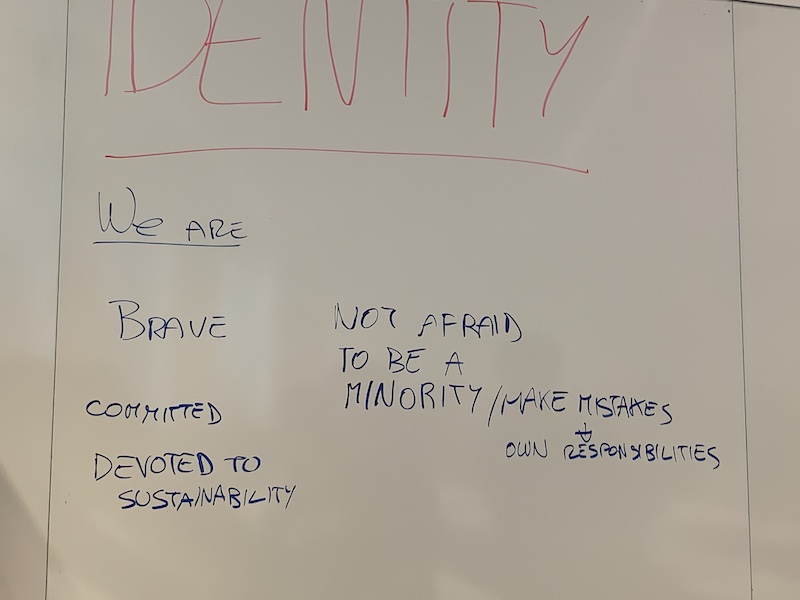 IDENTITY
We ARE
BRAVE
NOT AFRAID
TO BE A
MINORITY/MAKE MISTAKES
↓
OWN RESPONSIBILITIES
COMMITTED
DEVOTED TO
SUSTAINABILITY